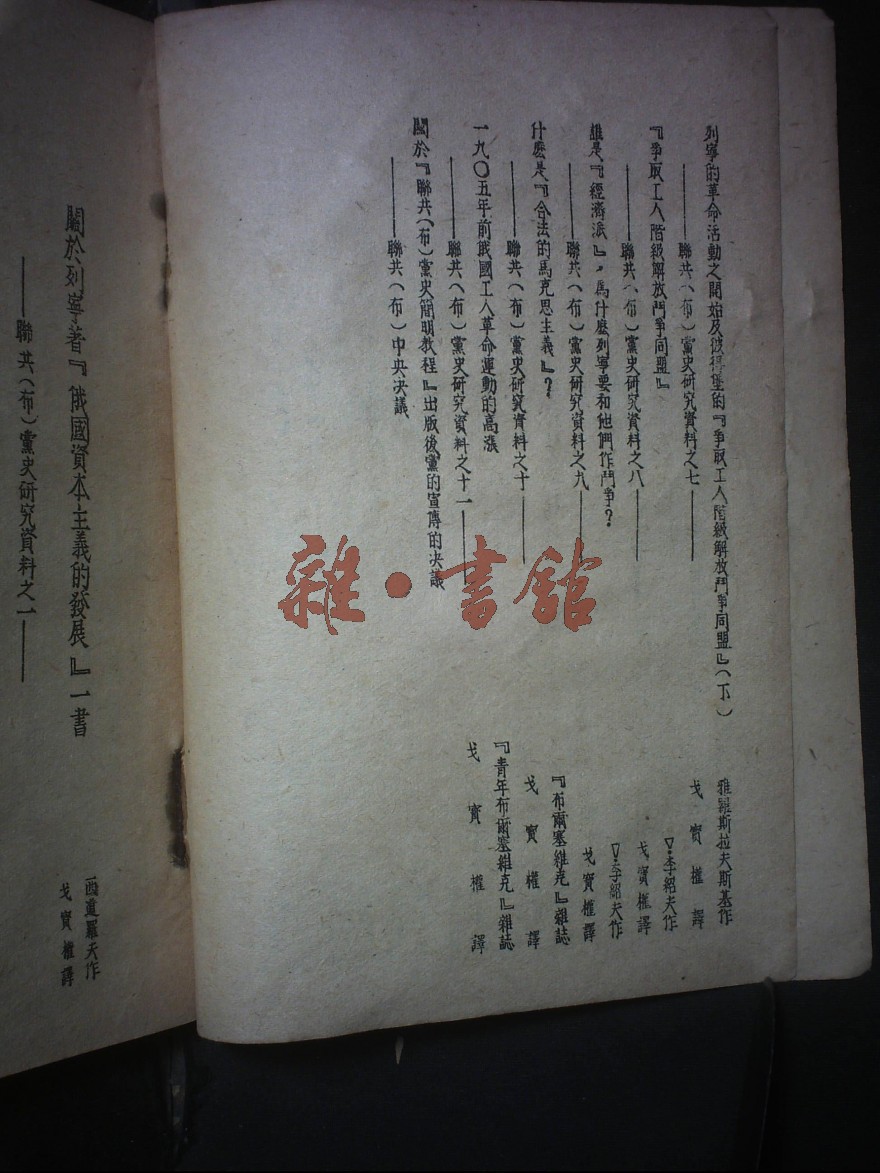 列寧的革命活動之開始及彼得堡的『爭取工人階級解放鬥爭同盟』（下）
雅羅斯拉夫斯基作
——聯共（布）黨史研究資料之七——
戈寶權譯
『爭取工人階級解放鬥爭同盟』
V·李紹夫作
——聯共（布）黨史研究資料之八——
戈寶權譯
誰是『經濟派』，爲什麽列寧要和他們作鬥爭？
V·李紹夫作
——聯共（布）黨史研究資料之九——
戈寶權譯
什麽是『合法的馬克思主義』？
『布爾塞維克』雜誌
——聯共（布）黨史研究資料之十——
戈寶權譯
一九〇五年前俄國工人革命運動的高漲
『青年布爾塞維克』雜誌
——聯共（布）黨史研究資料之十一——
戈寶權譯
關於『聯共（布）黨史簡明教程』出版後黨的宣傳的决議
——聯共（布）中央决議
雜·書舘
關於列寧著『俄國資本主義的發展』一書
西道羅夫作
——聯共（布）黨史研究資料之一——
戈寶權譯